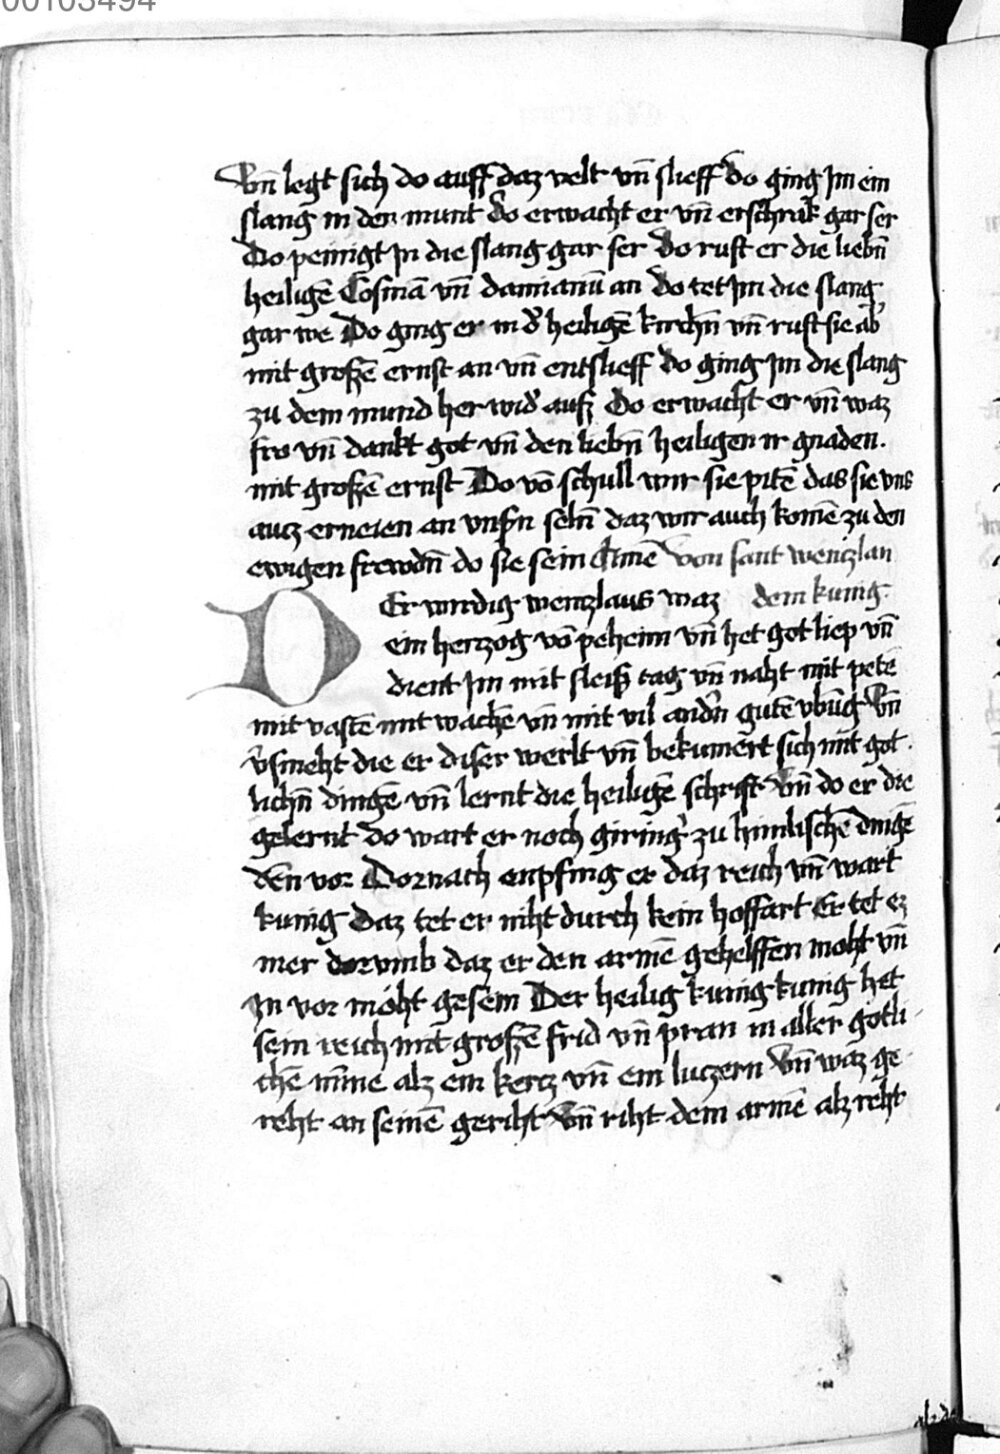 00103494
Vn̄ legt sich do auff daz velt vn̄ slieff do ging Im ein
slang in den munt do erwacht er vn̄ erschrak gar ser
Do peinigt In die slang gar ser Do ruft er die liebn̄
heiligē Cosmā vn̄ damianū an Do tet Im die slang
gar we Do ging er in d' heiligē kirchn̄ vn̄ ruft sie ab'
mit groszē ernst an vn̄ entslieff do ging Im die slang
zu dem mund her wid' ausz Do erwacht er vn̄ waz
fro vn̄ dankt got vn̄ den liebn̄ heiligen ir gnaden.
mit groszē ernst Do vō schull wir sie pitē das sie vns
auch erneren an vnsn̄ seln̄ daz wir auch komē zu den
ewigen frewdn̄ do sie sein Amē Von sant wenzlau
Er wirdig wenczlaus waz dem kunig.
ein herzog vō peheim vn̄ het got liep vn̄
dient Im mit fleisz tag vn̄ naht mit petē
mit vastē mit wachē vn̄ mit vil andn̄ gutē vbūg Vn̄
v'smeht die er diser werlt vn̄ bekumert sich mit got
lichn̄ dingē vn̄ lernt die heiligē schrift Vn̄ do er die
gelernt do wart er noch giring' zu himlischē dingē
den vor Dornach enpfing er daz reich vn̄ wart
kunig Daz tet er niht durch kein hoffart Er tet ez
mer dorvmb daz er den armē gehelffen moht vn̄
In vor móht gesein Der heilig kunig kunig het
sein reich mit groszē frid vn̄ pran in aller gotli
chē mīne alz ein kercz vn̄ ein luczern Vn̄ waz ge
reht an seinē geriht Vn̄ riht dem armē alz reht